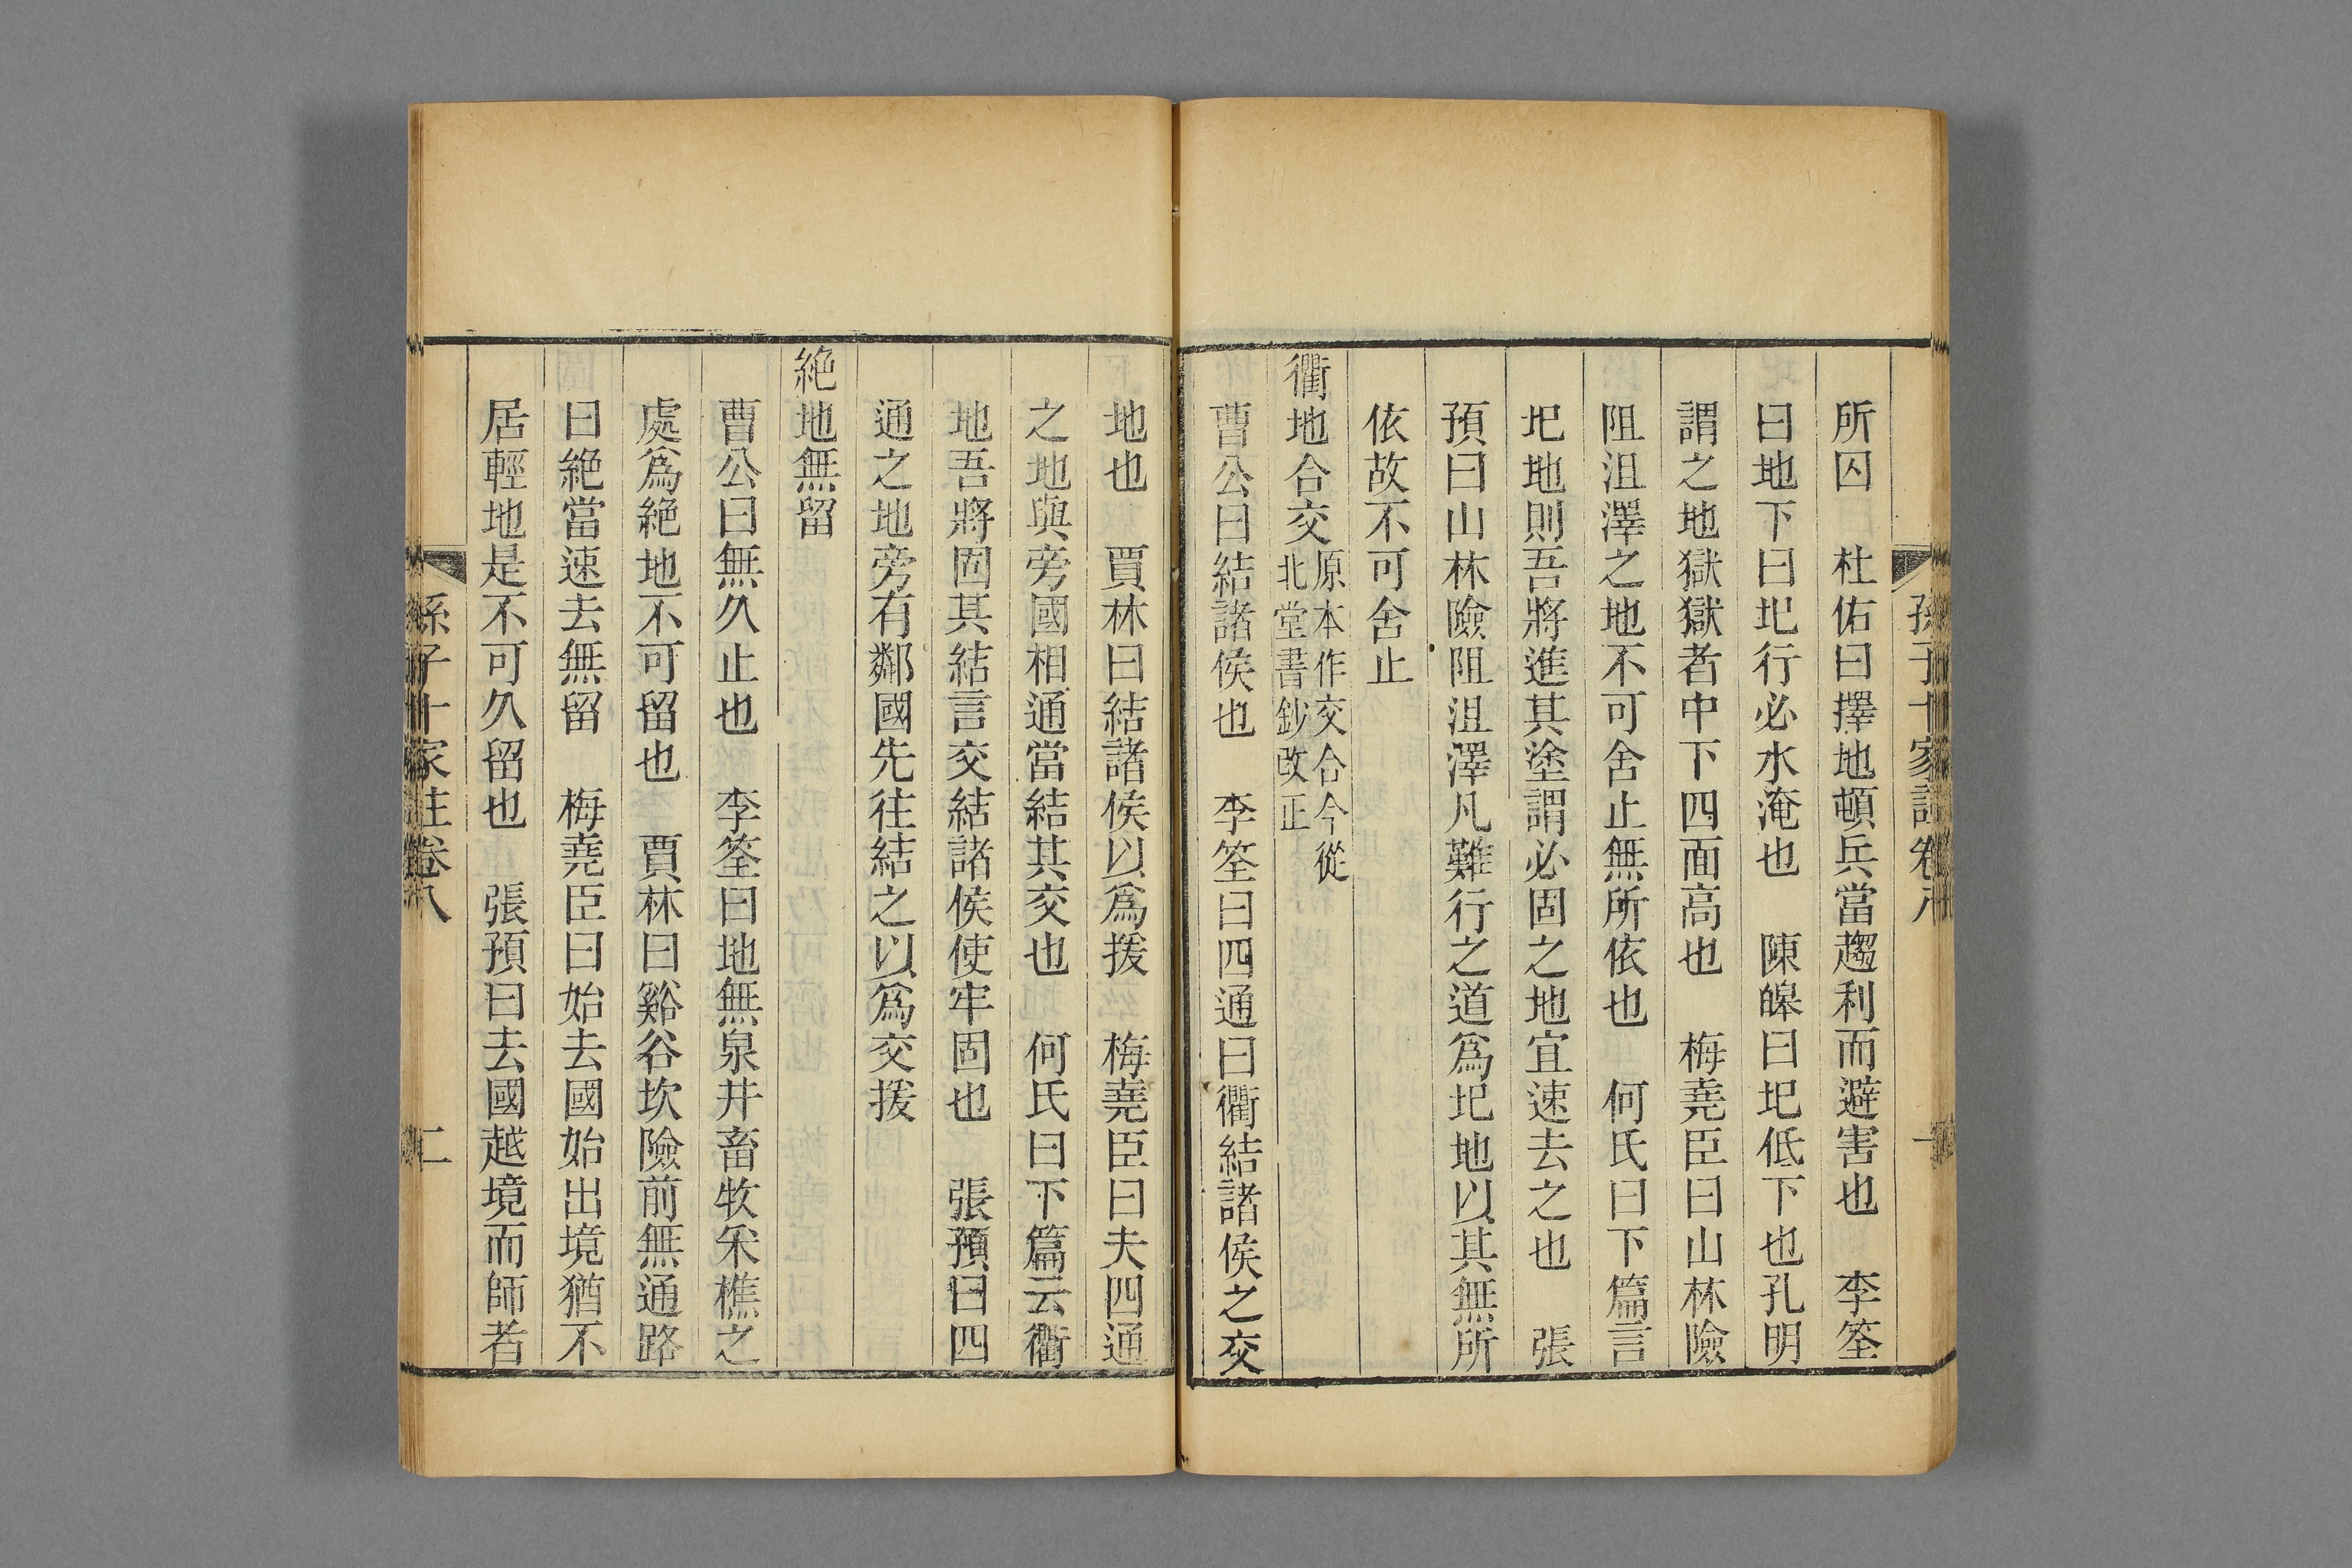 孫子十家註卷八 一
所囚　杜佑曰擇地頓兵當趨利而避害也　李筌
曰地下曰圮行必水淹也　陳皥曰圮低下也孔明
謂之地獄獄者中下四面高也　梅堯臣曰山林險
阻沮澤之地不可舍止無所依也　何氏曰下篇言
圮地則吾將進其塗謂必固之地宜速去之也　張
預曰山林險阻沮澤凡難行之道爲圮地以其無所
依故不可舍止
衢地合交
原本作交合今從
北堂書鈔改正
曹公曰結諸侯也　李筌曰四通曰衢結諸侯之交
地也　賈林曰結諸侯以爲援　梅堯臣曰夫四通
之地與旁國相通當結其交也　何氏曰下篇云衢
地吾將固其結言交結諸侯使牢固也　張預曰四
通之地旁有鄰國先往結之以爲交援
絶地無留
曹公曰無久止也　李筌曰地無泉井畜牧采樵之
處爲絶地不可留也　賈林曰谿谷坎險前無通路
曰絶當速去無留　梅堯臣曰始去國始出境猶不
居輕地是不可久留也　張預曰去國越境而師者
孫子十家註卷八 二